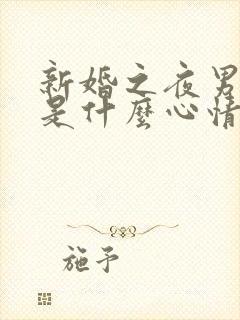 新婚之夜男
是什麼心情
施予